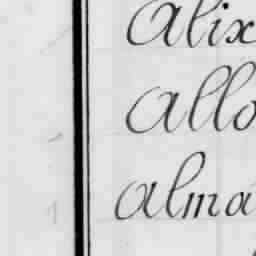 Alix
Allo
Alma